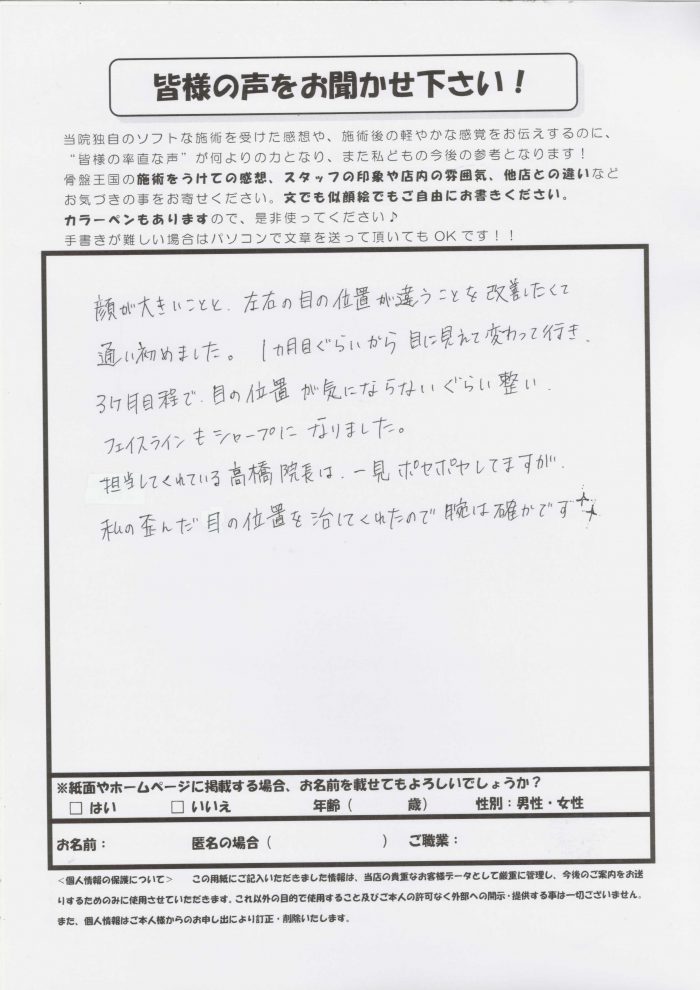 皆様の声をお聞かせ下さい！
当院独自のソフトな施術を受けた感想や、施術後の軽やかな感覚をお伝えするのに、
“皆様の率直な声”が何よりの力となり、また私どもの今後の参考となります！
骨盤王国の施術をうけての感想、スタッフの印象や店内の雰囲気、他店との違いなど
お気づきの事をお寄せください。文でも似顔絵でもご自由にお書きください。
カラーペンもありますので、是非使ってください♪
手書きが難しい場合はパソコンで文章を送って頂いてもOKです！！
顔が大きいことと、左右の目の位置が違うことを改善したくて
通い初めました。1ヵ月目ぐらいから目に見えて変わって行き、
3ヶ月目程で、目の位置が気にならないぐらい整い、
フェイスラインもシャープになりました。
担当してくれている高橋院長は、一見ポヤポヤしてますが、
私の歪んだ目の位置を治してくれたので腕は確かです
※紙面やホームページに掲載する場合、お名前を載せてもよろしいでしょうか？
□ はい □ いいえ 年齢（ 歳） 性別：男性・女性
お名前： 匿名の場合（ ） ご職業：
＜個人情報の保護について＞ この用紙にご記入いただきました情報は、当店の貴重なお客様データとして厳重に管理し、今後のご案内をお送
りするためのみに使用させていただきます。これ以外の目的で使用すること及びご本人の許可なく外部への開示・提供する事は一切ございません。
また、個人情報はご本人様からのお申し出により訂正・削除いたします。